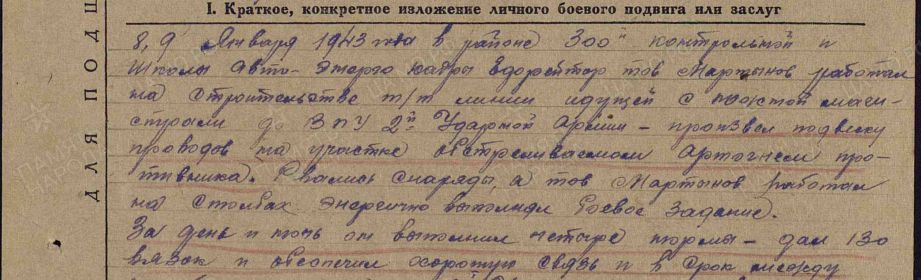 I. Краткое, конкретное изложение личного боевого подвига или заслуг
ДЛЯ ПОД Ш
8, 9 Января 1943 года в районе 300й контрольной и
школы Авто- тов Мартынов работал
на строительстве т/т линии идущей с маги-
страли до ВПУ 2й Ударной армии - произвел подвеску
проводов на участке обстреливаемом артогнем про-
тивника. Рвались снаряды, а тов Мартынов работал
на столбах энергично выполняя боевое задание.
За день и ночь он выполнил четыре нормы - дал 130
вязок и обеспечил хорошую связь и в срок между